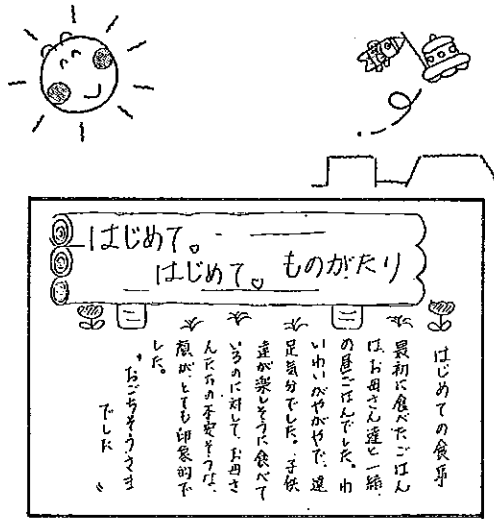 はじめて。
はじめて。ものがたり
はじめての食事
最初に食べたごはん
は、お母さん達と一緒
の昼ごはんでした。わ
いわいがやがやで、遠
足気分でした。子供
達が楽しそうに食べて
いるのに対して、お母さ
んたちの不安そうな、
顔が、とても印象的で
した。
"おごちそうさま
でした"